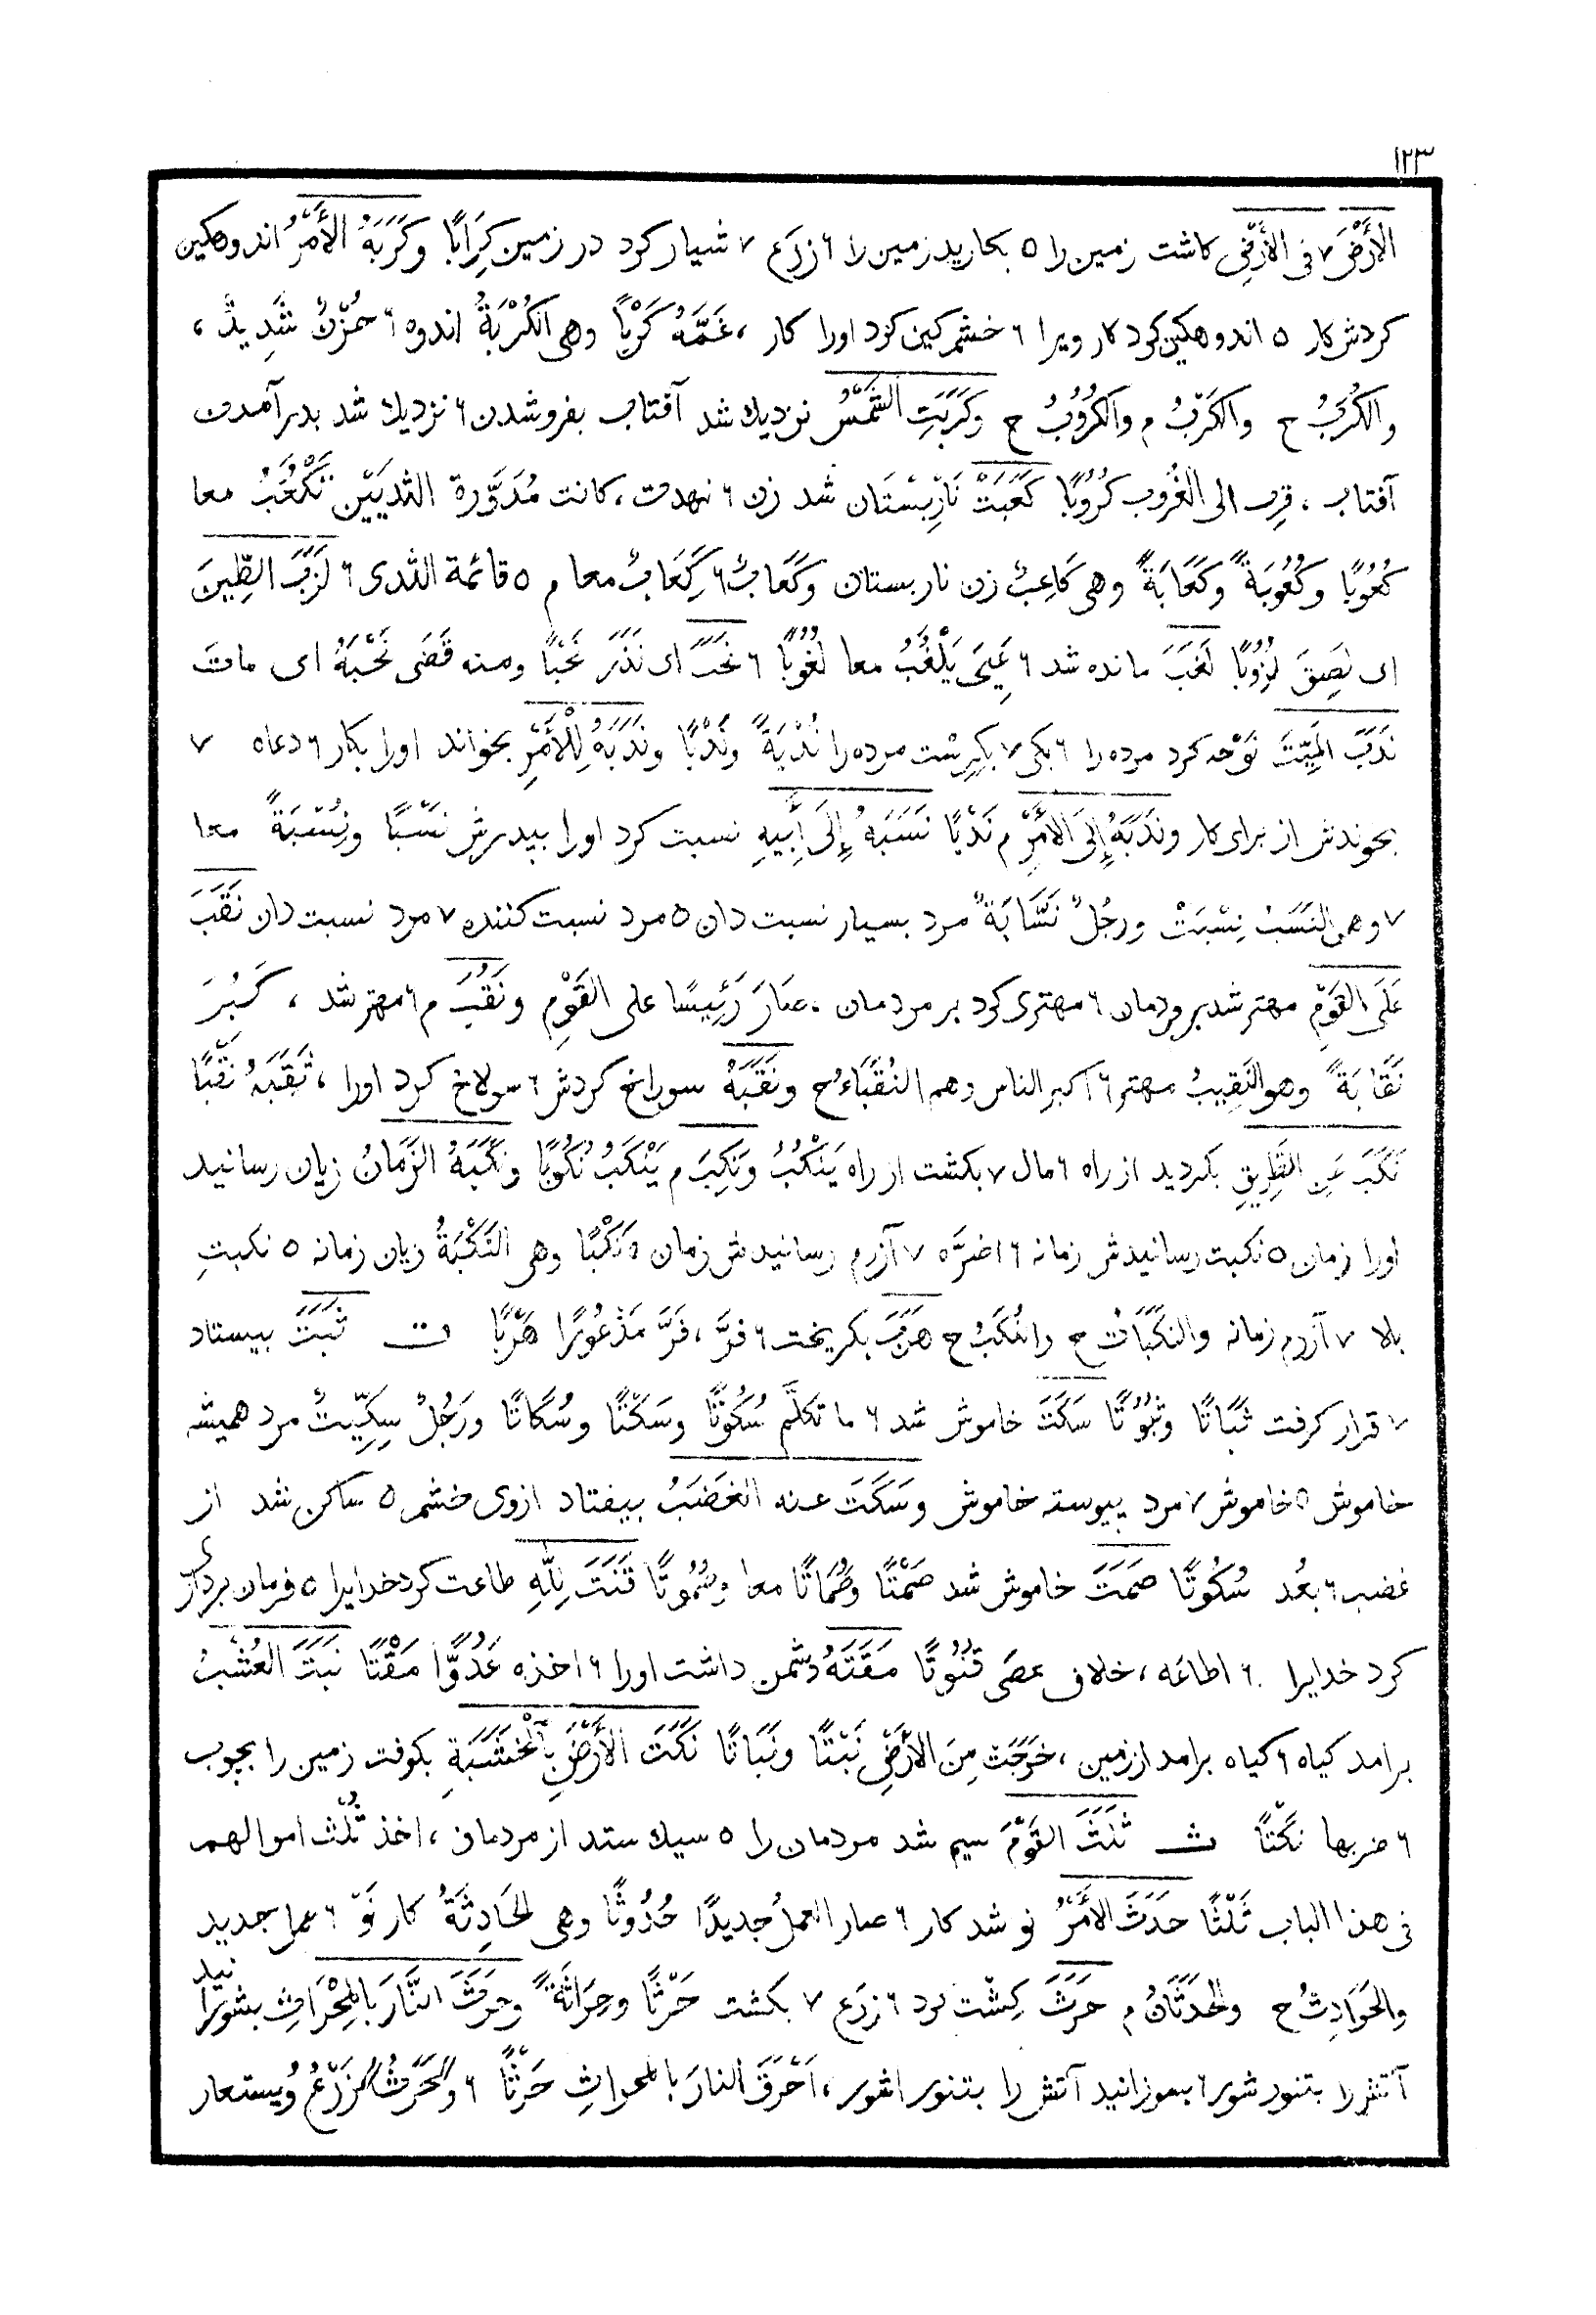 ١٢٣
الأَرْضَ ٧ فى الأَرْضِ كاشت زمين را ٥ بكاريد زمين را ٦ زرَع ٧ شيار كرد در زمين كِرَابًا وكَرَبَهُ الأَمْرُ اندوهكين
كردش كار ٥ اندوهكين كرد كار ويرا ٦ خشمركين كرد اورا كار ، غَمَّهُ كَرْبًا وهى الكُرْبَةُ اندوه ٦ حُزْنٌ شَدِيدٌ ،
والكُرَبُ ح والكَرْبُ م والكُرُوبُ ح وكَرَبَتِ الشَّمْسُ نزديك شد آفتاب بفروشدن ٦ نزديك شد بدرآمدن
آفتاب ، قرب الى الغُروب كُرُوبًا كَعَبَتْ نَارْبِسْتَان شد زن ٦ نهدت ، كانت مُدَوَّرة الثديَيْن تَكْعُبُ معا
كُعُوبًا وكُعُوبَةً وكَعَابَةً وهى كَاعِبٌ زن ناربستان وكَعَابٌ ٦ كِعَابٌ معا م ٥ قائمة الثدى ٦ لَزَبَ الطِّينَ
اى لصِقَ لُزُوبًا لَغَبَ مانده شد ٦ عَيِىَ يَلْغُبُ معا لُغُوبًا ٦ نَحَبَ اى نَذَرَ نَحْبًا ومنه قَضَى نَحْبَهُ اى مات
نَدَبَ المَيِّتَ نَوْحه كرد مرده را ٦ بكى ٧ بكِرِسْت مرده را نُدْبَةً ونَدْبًا ونَدَبَهُ لِلْأَمْرِ بخواند اورا بكار ٦ دعاه ٧
بخوندش از براى كار ونَدَبَهُ إِلَى الأَمْرِ م نَدْبًا نَسَبَهُ إِلَى أَبِيهِ نسبت كرد اورا بپدرش نَسْبًا ونِسْبَةً معا
٧ وهى النَسَبُ نِسْبَتْ ورجُلٌ نَسَّابَةٌ مرد بسيار نسبت دان ٥ مرد نسبت كننده ٧ مرد نسبت دان نَقَبَ
عَلَى القَوْمِ مهتر شد بر مردمان ٦ مهترى كرد بر مردمان ، صَارَ رَئِيسًا على القَوْمِ ونَقُبَ م ٦ مهتر شد ، كَبُرَ
نَقَابَةً وهو النَقِيبُ مهتر ٦ اكبر الناس وهم النُقَبَاءُ ح ونَقَبَهُ سوراخ كردش ٦ سولاخ كرد اورا ، ثَقَبَهُ نَقْبًا
نَكَبَ عَنِ الطَّرِيقِ بكرديد از راه ٦ مال ٧ بكشت از راه يَنْكُبُ ونَكِبَ م يَنْكَبُ نُكُوبًا ونَكَبَهُ الزَمَانُ زيان رسانيد
اورا زمان ٥ نكبت رسانيدش زمانه ٦ اضرَّه ٧ آزرم رسانيدش زمان نَكْبًا وهى النَكْبَةُ زيان زمانه ٥ نكبتِ
بالا ٧ آزرم زمانه والنكَبَاتُ ح والنُكَبُ ح هرَبَ بكريخت ٦ فرَّ ، فَرَّ مَذْعُورًا هَرْبًا ت ثَبَتَ بيستاد
٧ قرار كرفت ثَبَاتًا وثُبُوتًا سَكَتَ خاموش شد ٦ ما تكلَّم سُكُوتًا وسَكْتًا وسُكَاتًا ورَجُلٌ سِكِّيتٌ مرد هميشه
خاموش ٥ خاموش ٧ مرد پيوسته خاموش وسَكَتَ عنه الغَضَبُ بيفتاد ازوى خشم ٥ ساكن شد از
غضب ٦ بعُد سُكُوتًا صَمَتَ خاموش شد صَمْتًا وصُمَاتًا معا وصُمُوتًا قَنَتَ لِلّهِ طاعت كرد خدايرا ٥ فرمان بردارى
كرد خدايرا ٦ اطاعه ، خلاف عصَى قُنُوتًا مَقَتَهُ دشمن داشت اورا ٦ اخذه عَدُوًّا مَقْتًا نَبَتَ العُشْبُ
برامد كياه ٦ كياه برامد از زمين ، خرَجَتْ مِنَ الأَرْضِ نَبْتًا ونَبَاتًا نَكَتَ الأَرْضَ بِالْخَشَبَةِ بكوفت زمين را بچوب
٦ ضربها نَكْتًا ث ثَلَثَ القَوْمَ سيم شد مردمان را ٥ سيك ستد از مردمان ، اخذ ثُلُث اموالهم
فى هذا الباب ثَلْثًا حَدَثَ الأَمْرُ نو شد كار ٦ صار العملُ جديدًا حُدُوثًا وهى الحَادِثَةُ كار نَوْ ٦ عمل جديد
والحَوَادِثُ ح والحَدَثَانُ م حرَثَ كِشْت كرد ٦ زرَع ٧ بكشت حَرْثًا وحِرَاثَةً وحرَثَ النَّارَ بالمِحْرَاثِ بشورانيد
آتش را بتنور شور ٦ بموزانيد آتش را بتنور اشور ، اَحْرَقَ النارَ بالمحراثِ حَرْثًا ٦ والحَرْثُ الزَرْعُ ويستعار